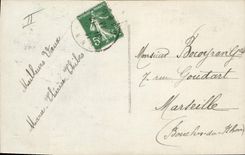 II
Meilleurs Vœux
Marie Thérèse Thiles
5
Monsieur
7 rue Goudard
Marseille
(Bouches-du-Rhône)